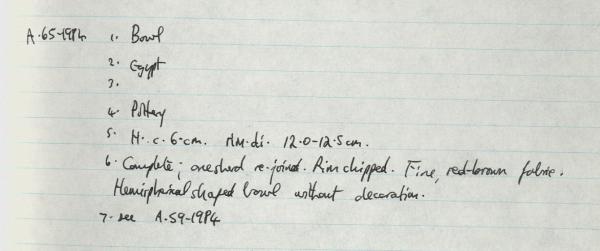 A.65-1984 1. Bowl
2. Egypt
3.
4. Pottery
5. H. c. 6.cm. Mm.di. 12.0-12.5cm.
6. Complete; one sherd re-joined. Rim chipped. Fine, red-brown fabric.
Hemispherical shaped bowl without decoration.
7. see A.59-1984